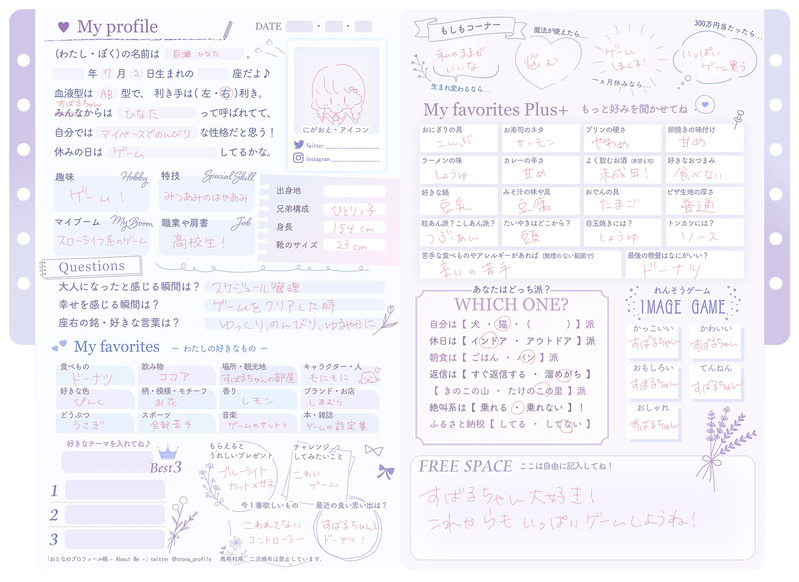 My profile
DATE
(わたし・ぼく)の名前は 百瀬 ひなた
年 7 月 2 日生まれの 座だよ♪
血液型は AB 型で、 利き手は( 左・右 )利き。
すばるちゃん
みんなからは ひなた って呼ばれてて、
自分では マイペースでのんびり な性格だと思う!
休みの日は ゲーム してるかな。
にがおえ・アイコン
Twitter
Instagram
趣味 Hobby
ゲーム!
特技 Special Skill
みつあみのはやあみ
マイブーム My Boom
スローライフ系のゲーム
職業や肩書 Job
高校生!
出身地
兄弟構成 ひとりっ子
身長 154 cm
靴のサイズ 23 cm
Questions
大人になったと感じる瞬間は? スケジュール管理
幸せを感じる瞬間は? ゲームをクリアした時
座右の銘・好きな言葉は? ゆっくり、のんびり、ゆるやかに
My favorites — わたしの好きなもの —
食べもの 飲み物 場所・観光地 キャラクター・人
ドーナツ ココア すばるちゃんの部屋 もにもに
好きな色 柄・模様・モチーフ 香り ブランド・お店
ぴんく お花 レモン しまむら
どうぶつ スポーツ 音楽 本・雑誌
うさぎ 全部苦手 ゲームのサントラ ゲームの設定集
好きなテーマを入れてね♪
Best3
1
2
3
もらえると
うれしいプレゼント
ブルーライト
カットメガネ
チャレンジ
してみたいこと
こわい
ゲーム
今1番欲しいもの
こわれてない
コントローラー
最近の良い思い出は?
すばるちゃんと
ドーナツ!
「おとなのプロフィール帳 - About Me -」 twitter @otona_profile 商用利用、二次頒布は禁止しています。
もしもコーナー
私のままが
いいな
生まれ変わるなら…
魔法が使えたら…
悩む
ゲーム
しまくる!
一ヵ月休みなら…
300万円当たったら…
いっぱい
ゲーム買う
My favorites Plus+ もっと好みを聞かせてね
おにぎりの具 お寿司のネタ プリンの硬さ 卵焼きの味付け
こんぶ サーモン やわめ 甘め
ラーメンの味 カレーの辛さ よく飲むお酒(希望も可) 好きなおつまみ
しょうゆ 甘め 未成年! 食べない
好きな鍋 みそ汁の味や具 おでんの具 ピザ生地の厚さ
豆乳 豆腐 たまご 普通
粒あん派?こしあん派? たいやきはどこから? 目玉焼きには? トンカツには?
つぶあん 頭 しょうゆ ソース
苦手な食べものやアレルギーがあれば(無理のない範囲で) 最後の晩餐はなにがいい?
辛いの苦手 ドーナツ
あなたはどっち派?
WHICH ONE?
自分は【 犬 ・ 猫 ・( )】派
休日は【 インドア ・ アウトドア 】派
朝食は【 ごはん ・ パン 】派
返信は【 すぐ返信する ・ 溜めがち 】
【 きのこの山 ・ たけのこの里 】派
絶叫系は【 乗れる ・ 乗れない 】!
ふるさと納税【 してる ・ してない 】
れんそうゲーム
IMAGE GAME
かっこいい かわいい
すばるちゃん すばるちゃん
おもしろい てんねん
すばるちゃん すばるちゃん
おしゃれ
すばるちゃん
FREE SPACE ここは自由に記入してね!
すばるちゃん大好き!
これからも いっぱいゲームしようね!